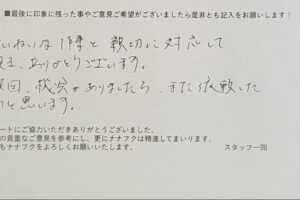 ■最後に印象に残った事やご意見ご希望がございましたら是非とも記入をお願いします！
ていねいな仕事と親切に対応して
ありがとうございます。
次回、機会がありましたら、また依頼した
と思います。
ートにご協力いただきありがとうございました。
の貴重なご意見を参考にし、更にナナフクは精進してまいります。
もナナフクをよろしくお願いいたします。 スタッフ一同